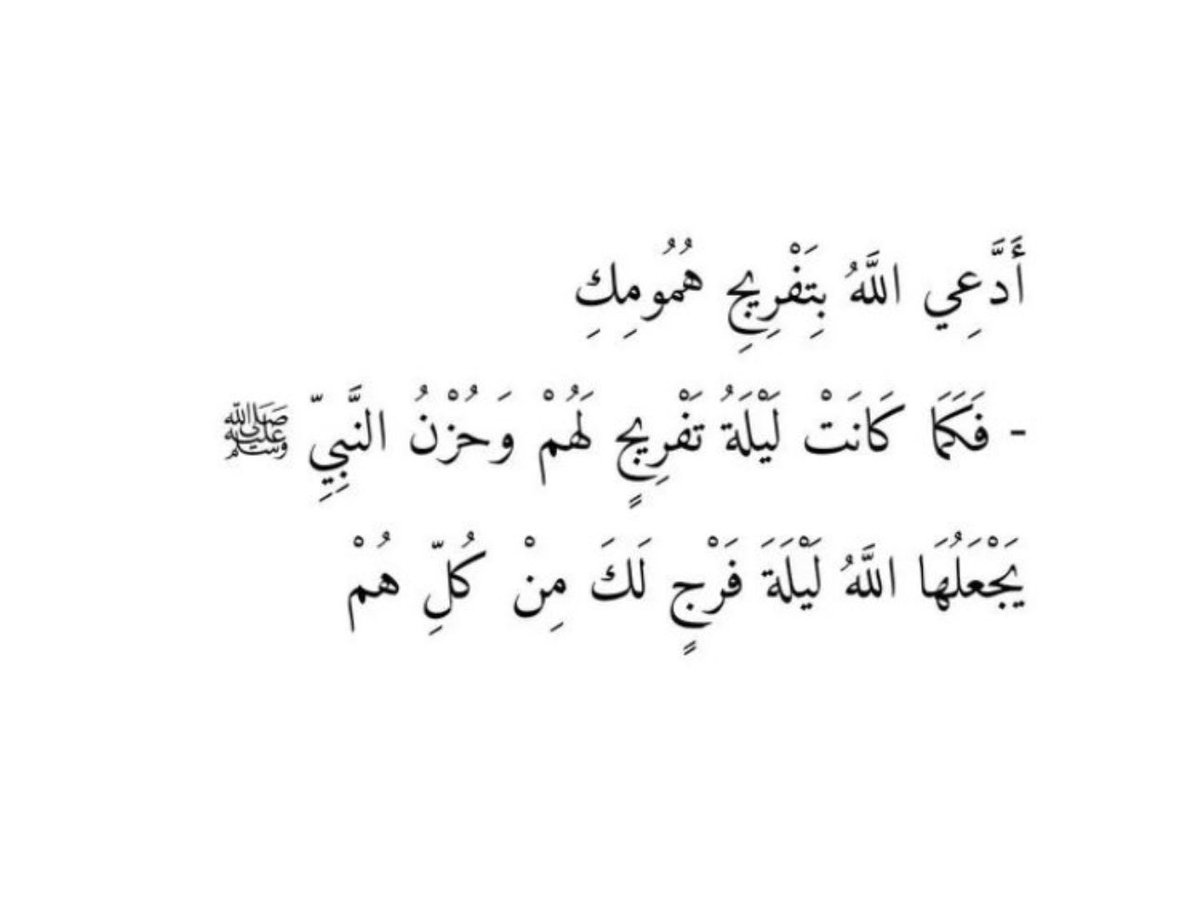 أَدَّعِي اللَّهُ بِتَفْرِيجِ هُمُومِكِ
- فَكَمَا كَانَتْ لَيْلَةُ تَفْرِيجٍ لَهُمْ وَحُزْنُ النَّبِيِّ ﷺ
يَجْعَلُهَا اللَّهُ لَيْلَةَ فَرْجٍ لَكَ مِنْ كُلِّ هُمْ